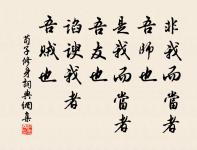 非我而當者
吾師也
是我而當者
吾友也
諂諛我者
吾賊也
荀子修身詞典網集